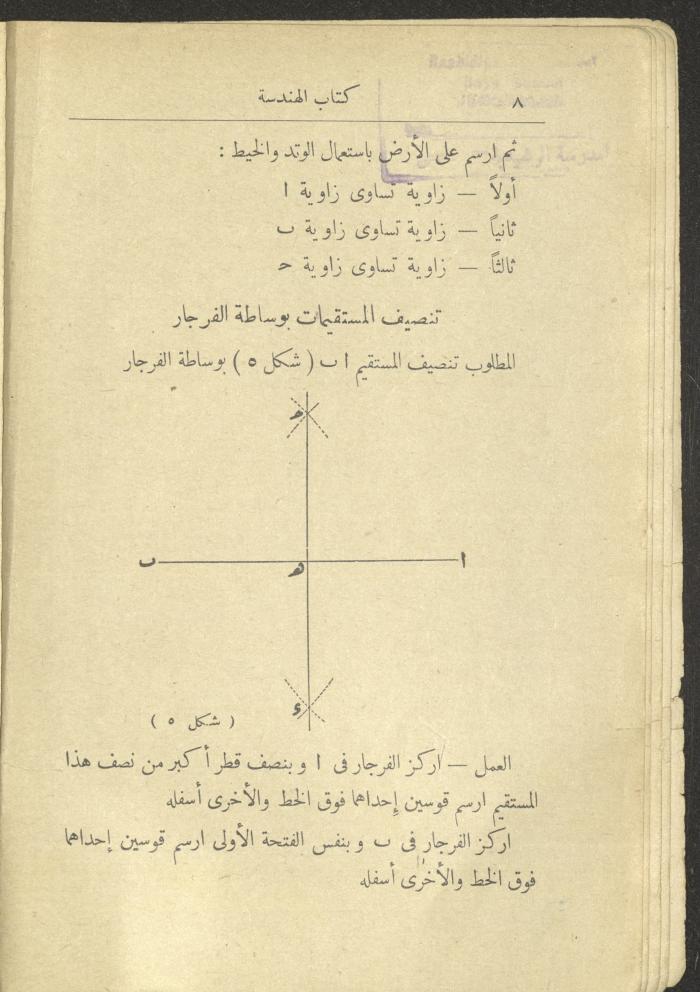 ٨ كتاب الهندسة
ثم ارسم على الأرض باستعمال الوتد والخيط :
أولاً — زاوية تساوى زاوية ا
ثانياً — زاوية تساوى زاوية ٮ
ثالثاً — زاوية تساوى زاوية ح
تنصيف المستقيمات بوساطة الفرجار
المطلوب تنصيف المستقيم ا ٮ ( شكل ٥ ) بوساطة الفرجار
ح
ا
ٮ
ه
ء
( شكل ٥ )
العمل — اركز الفرجار فى ا و بنصف قطر أكبر من نصف هذا
المستقيم ارسم قوسين إحداهما فوق الخط والأخرى أسفله
اركز الفرجار فى ٮ و بنفس الفتحة الأولى ارسم قوسين إحداهما
فوق الخط والأخرى أسفله